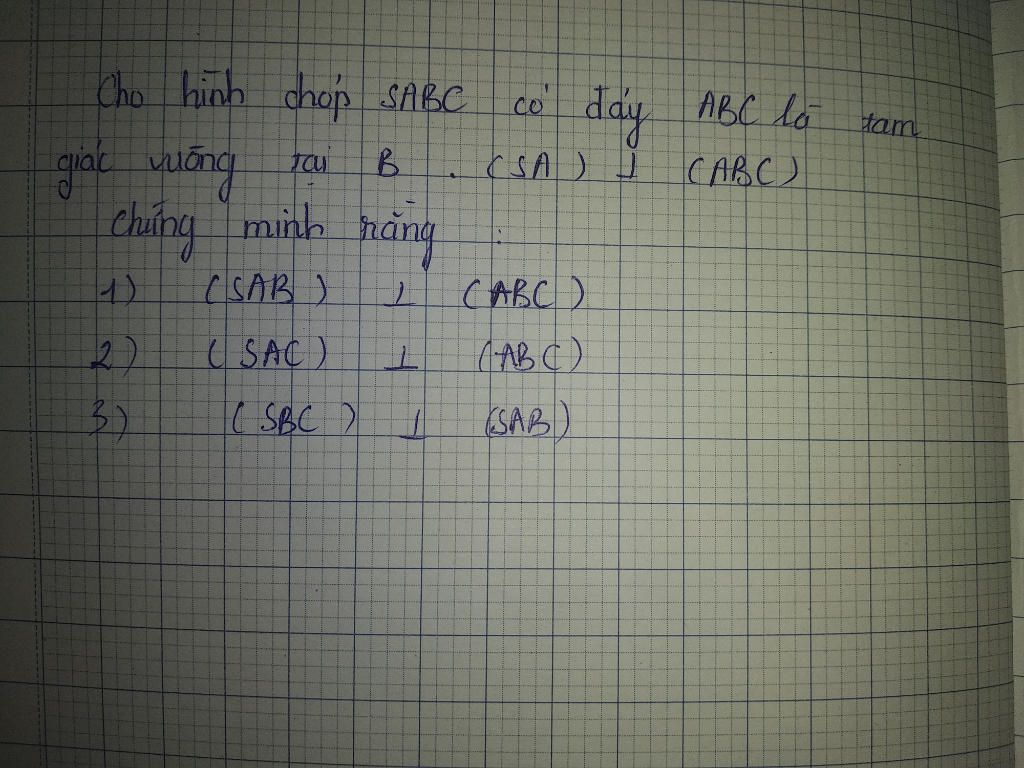 Cho hình chóp SABC có đáy ABC là tam
giác vuông tại B . (SA) ⊥ (ABC)
Chứng minh rằng :
1) (SAB) ⊥ (ABC)
2) (SAC) ⊥ (ABC)
3) (SBC) ⊥ (SAB)